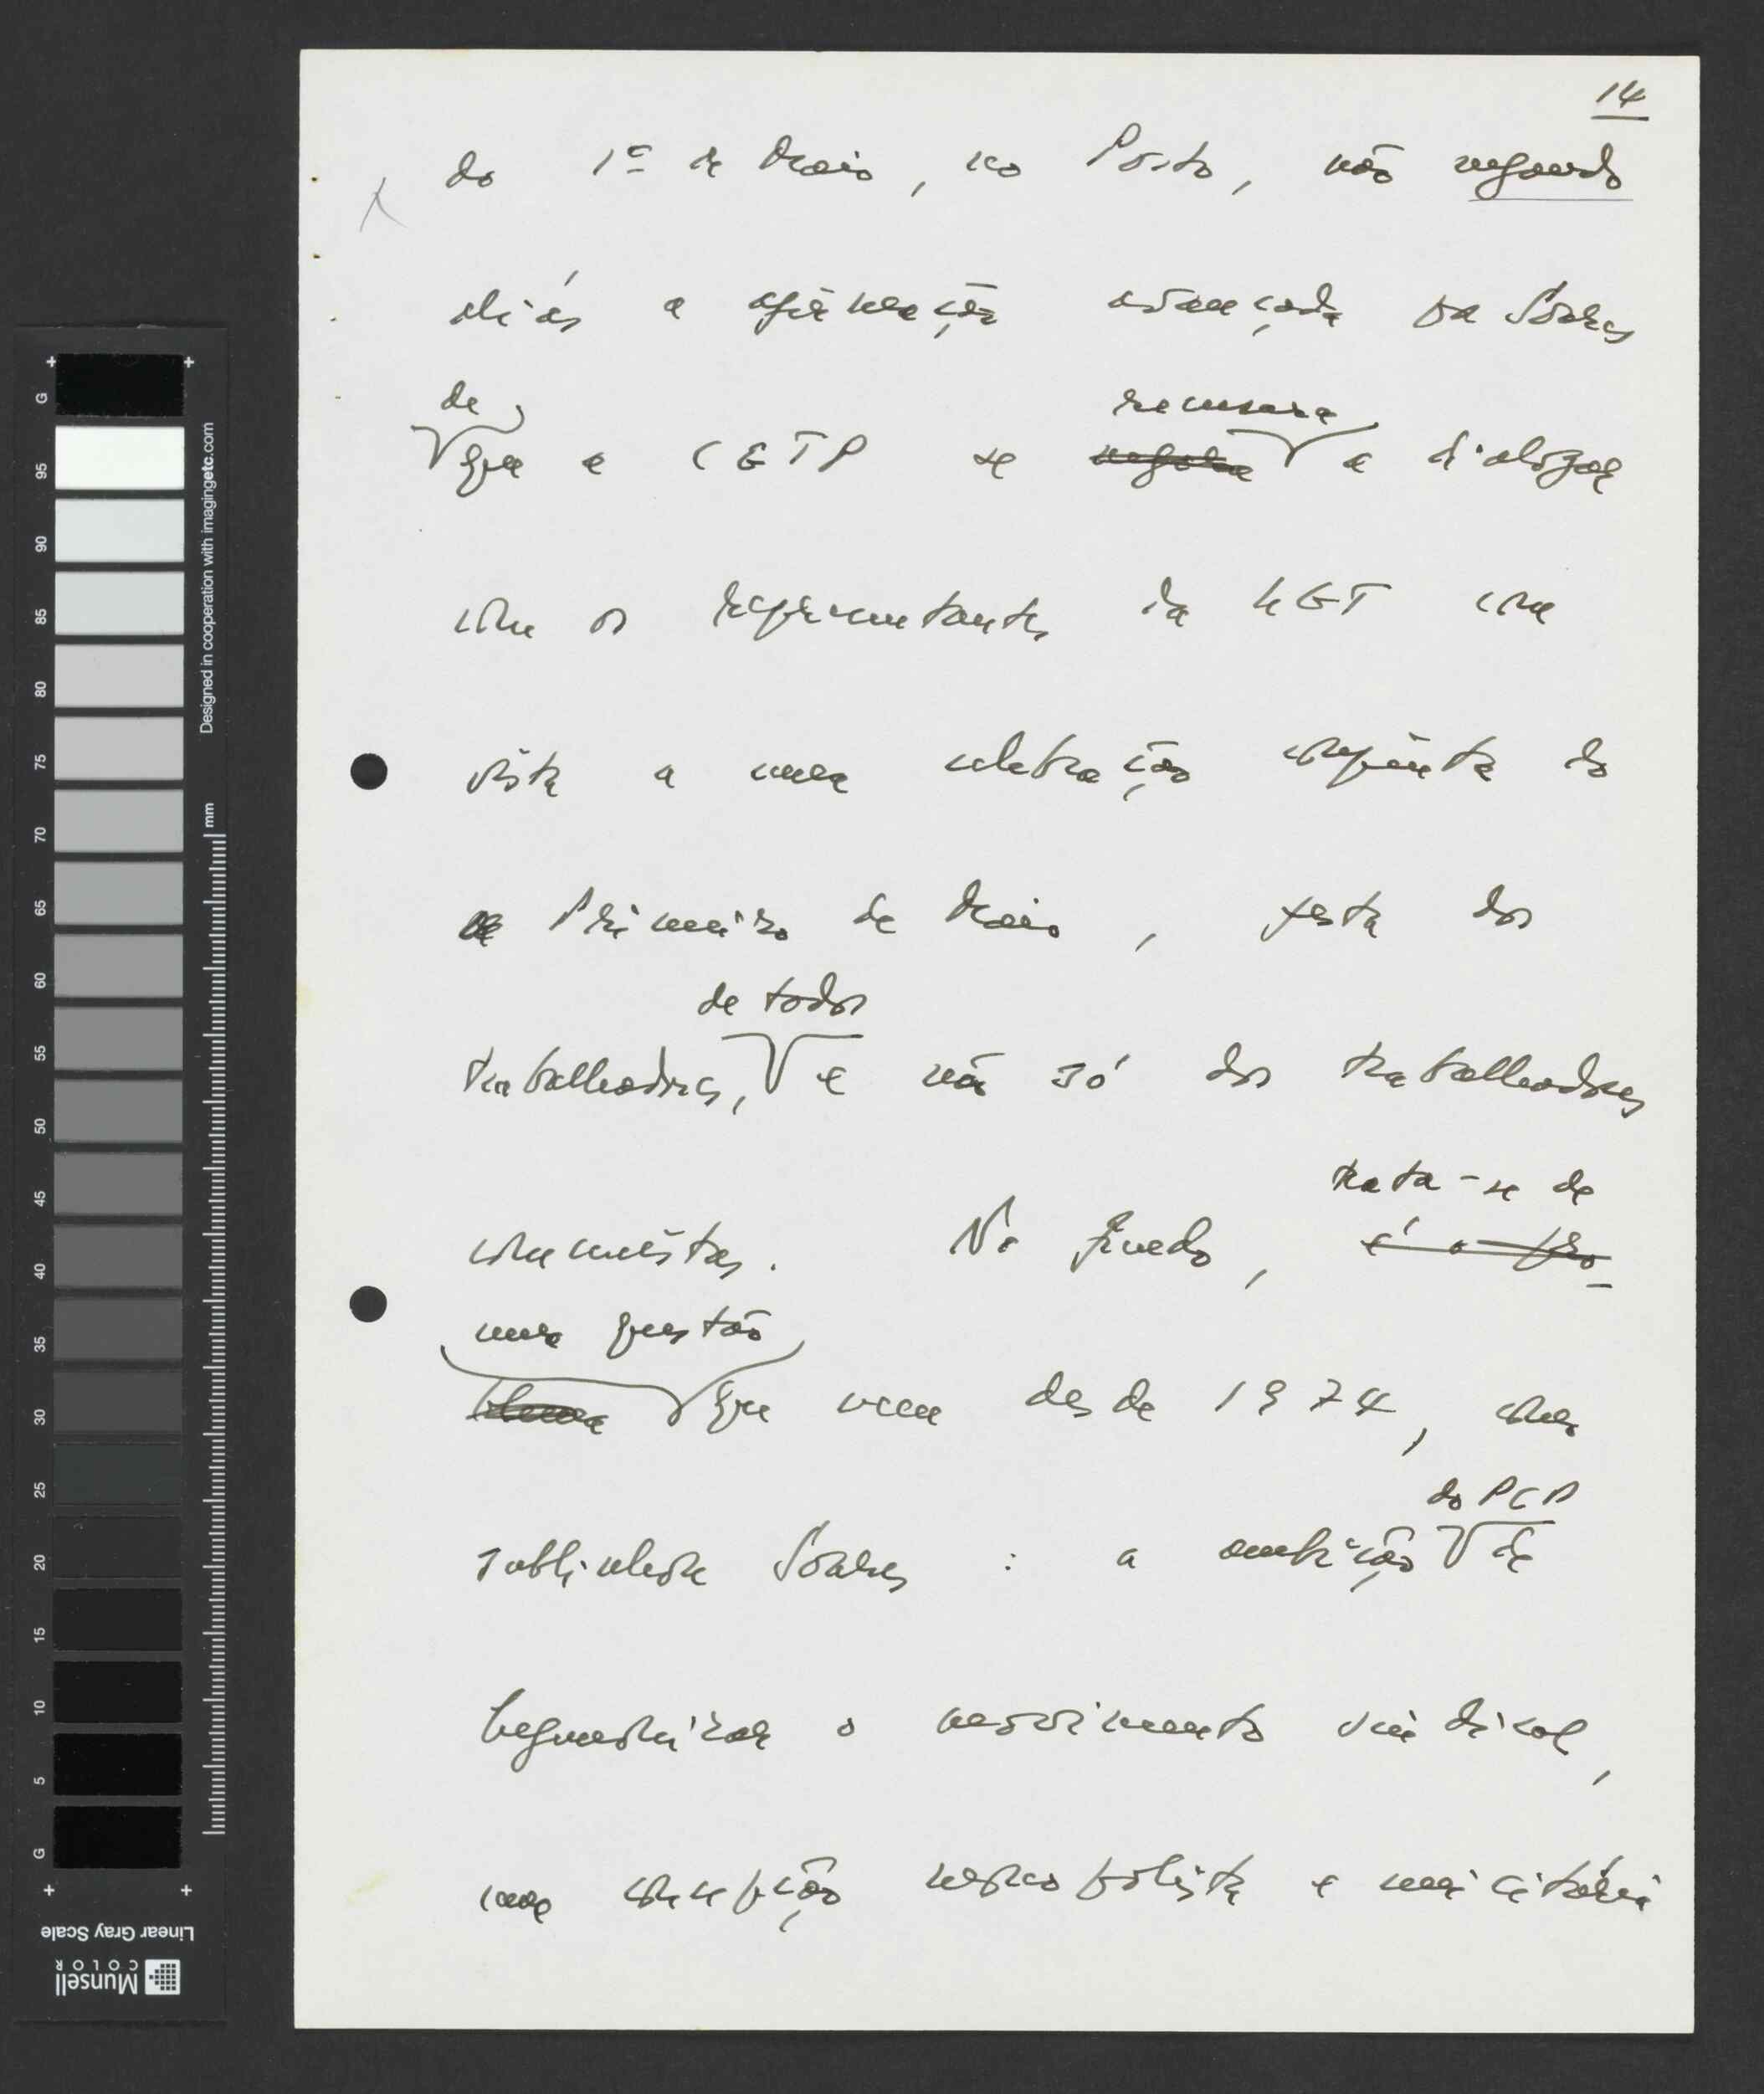 14
do 1º de Maio, no Porto, não negando
aliás a afirmação avançada por Soares
de
que a CGTP se negara a dialogar
recusara
com os representantes da UGT com
vista a uma celebração conjunta do
Primeiro de Maio, festa dos
de todos
trabalhadores, e não só dos trabalhadores
trata-se de
comunistas. No fundo, é o pro-
uma questão
blema que vem desde 1974, como
do PCP
sublinhou Soares: a ambição de
hegemonizar o movimento sindical,
uma concepção monopolista e unicitária
Designed in cooperation with imagingetc.com
mm
G 95 90 85 80 75 70 65 60 55 50 45 40 35 30 25 20 15 10 5 G
Linear Gray Scale
Munsell
COLOR